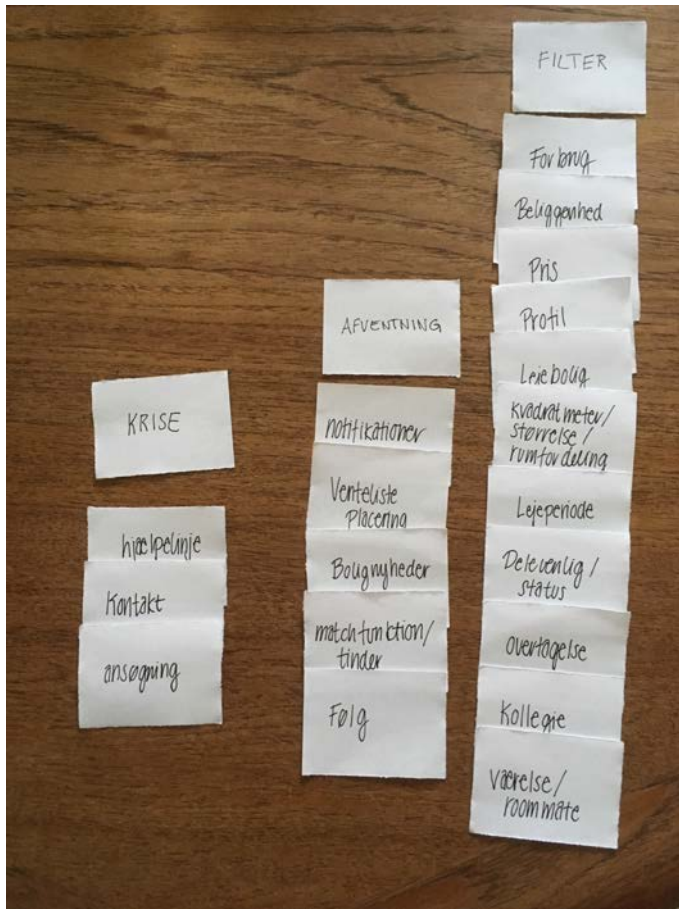 KRISE
hjælpelinje
Kontakt
ansøgning
AFVENTNING
notifikationer
Venteliste
Placering
Bolignyheder
matchfunktion/
tinder
Følg
FILTER
Forbrug
Beliggenhed
Pris
Profil
Lejebolig
kvadratmeter/
størrelse/
rumfordeling
Lejeperiode
Delevenlig/
status
overtagelse
Kollegie
værelse/
roommate